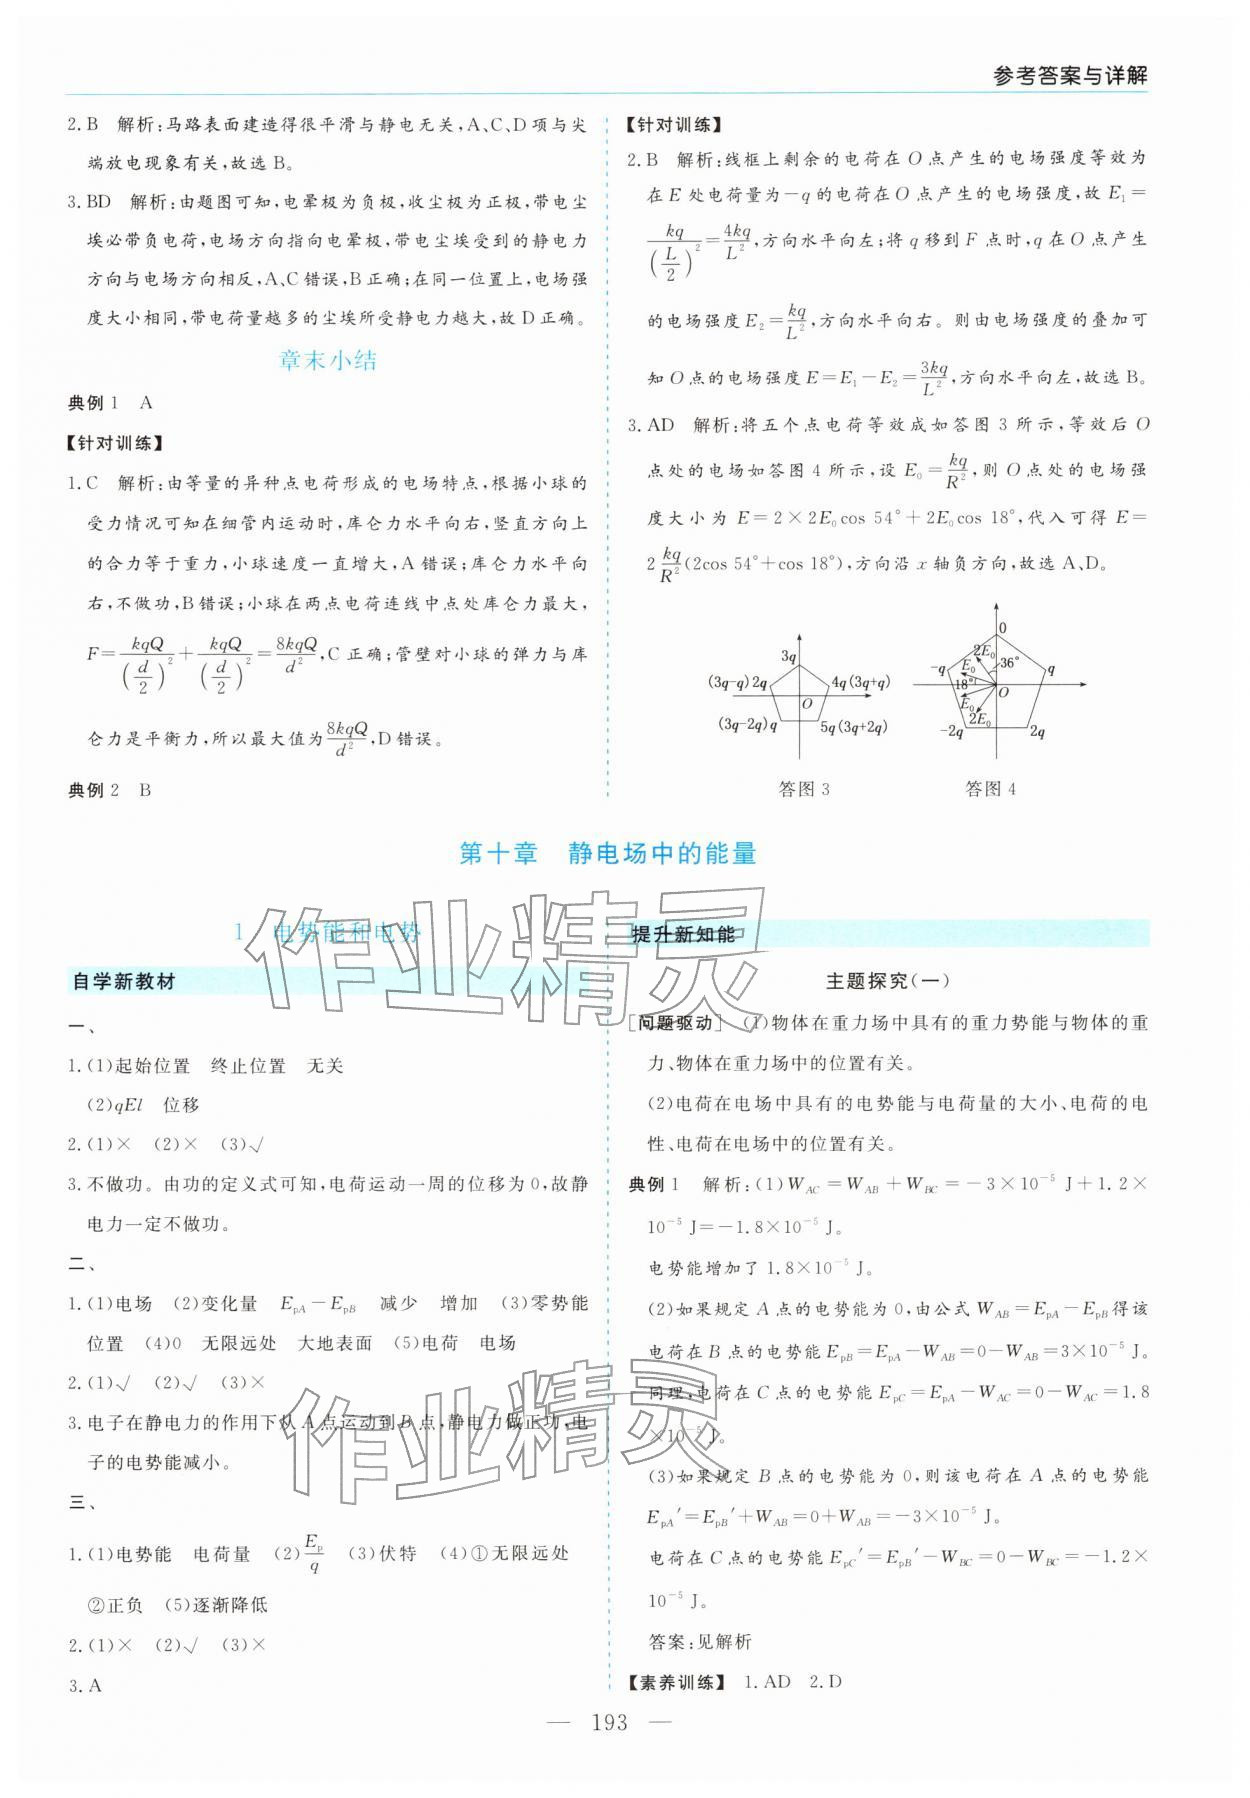 参考答案与详解
2. B　解析:马路表面建造得很平滑与静电无关,A、C、D项与尖
端放电现象有关,故选B。
3. BD　解析:由题图可知,电晕极为负极,收尘极为正极,带电尘
埃必带负电荷,电场方向指向电晕极,带电尘埃受到的静电力
方向与电场方向相反,A、C错误,B正确;在同一位置上,电场强
度大小相同,带电荷量越多的尘埃所受静电力越大,故D正确。
章末小结
典例1　A
【针对训练】
1. C　解析:由等量的异种点电荷形成的电场特点,根据小球的
受力情况可知在细管内运动时,库仑力水平向右,竖直方向上
的合力等于重力,小球速度一直增大,A错误;库仑力水平向
右,不做功,B错误;小球在两点电荷连线中点处库仑力最大,
F=kqQ/(d/2)²+kqQ/(d/2)²=8kqQ/d²,C正确;管壁对小球的弹力与库
仑力是平衡力,所以最大值为8kqQ/d²,D错误。
典例2　B
【针对训练】
2. B　解析:线框上剩余的电荷在O点产生的电场强度等效为
在E处电荷量为-q的电荷在O点产生的电场强度,故E₁=
kq/(L/2)²=4kq/L²,方向水平向左;将q移到F点时,q在O点产生
的电场强度E₂=kq/L²,方向水平向右。则由电场强度的叠加可
知O点的电场强度E=E₁-E₂=3kq/L²,方向水平向左,故选B。
3. AD　解析:将五个点电荷等效成如答图3所示,等效后O
点处的电场如答图4所示,设E₀=kq/R²,则O点处的电场强
度大小为E=2×2E₀cos 54°+2E₀cos 18°,代入可得E=
2kq/R²(2cos 54°+cos 18°),方向沿x轴负方向,故选A、D。
3q
(3q-q)2q　4q(3q+q)
O
(3q-2q)q　5q(3q+2q)
答图3
0
2E₀　36°
-q　E₀　q
18°　O
E₀
2E₀
-2q　2q
答图4
第十章　静电场中的能量
1　电势能和电势
自学新教材
一、
1. (1)起始位置　终止位置　无关
(2)qEl　位移
2. (1)×　(2)×　(3)√
3. 不做功。由功的定义式可知,电荷运动一周的位移为0,故静
电力一定不做功。
二、
1. (1)电场　(2)变化量　EpA-EpB　减少　增加　(3)零势能
位置　(4)0　无限远处　大地表面　(5)电荷　电场
2. (1)√　(2)√　(3)×
3. 电子在静电力的作用下从A点运动到B点,静电力做正功,电
子的电势能减小。
三、
1. (1)电势能　电荷量　(2)Ep/q　(3)伏特　(4)①无限远处
②正负　(5)逐渐降低
2. (1)×　(2)√　(3)×
3. A
提升新知能
主题探究(一)
[问题驱动]　(1)物体在重力场中具有的重力势能与物体的重
力、物体在重力场中的位置有关。
(2)电荷在电场中具有的电势能与电荷量的大小、电荷的电
性、电荷在电场中的位置有关。
典例1　解析:(1)WAC=WAB+WBC=-3×10⁻⁵ J+1.2×
10⁻⁵ J=-1.8×10⁻⁵ J。
电势能增加了1.8×10⁻⁵ J。
(2)如果规定A点的电势能为0,由公式WAB=EpA-EpB得该
电荷在B点的电势能EpB=EpA-WAB=0-WAB=3×10⁻⁵ J。
同理,电荷在C点的电势能EpC=EpA-WAC=0-WAC=1.8
×10⁻⁵ J。
(3)如果规定B点的电势能为0,则该电荷在A点的电势能
EpA′=EpB′+WAB=0+WAB=-3×10⁻⁵ J。
电荷在C点的电势能EpC′=EpB′-WBC=0-WBC=-1.2×
10⁻⁵ J。
答案:见解析
【素养训练】　1. AD　2. D
作业精灵
作业精灵
— 193 —